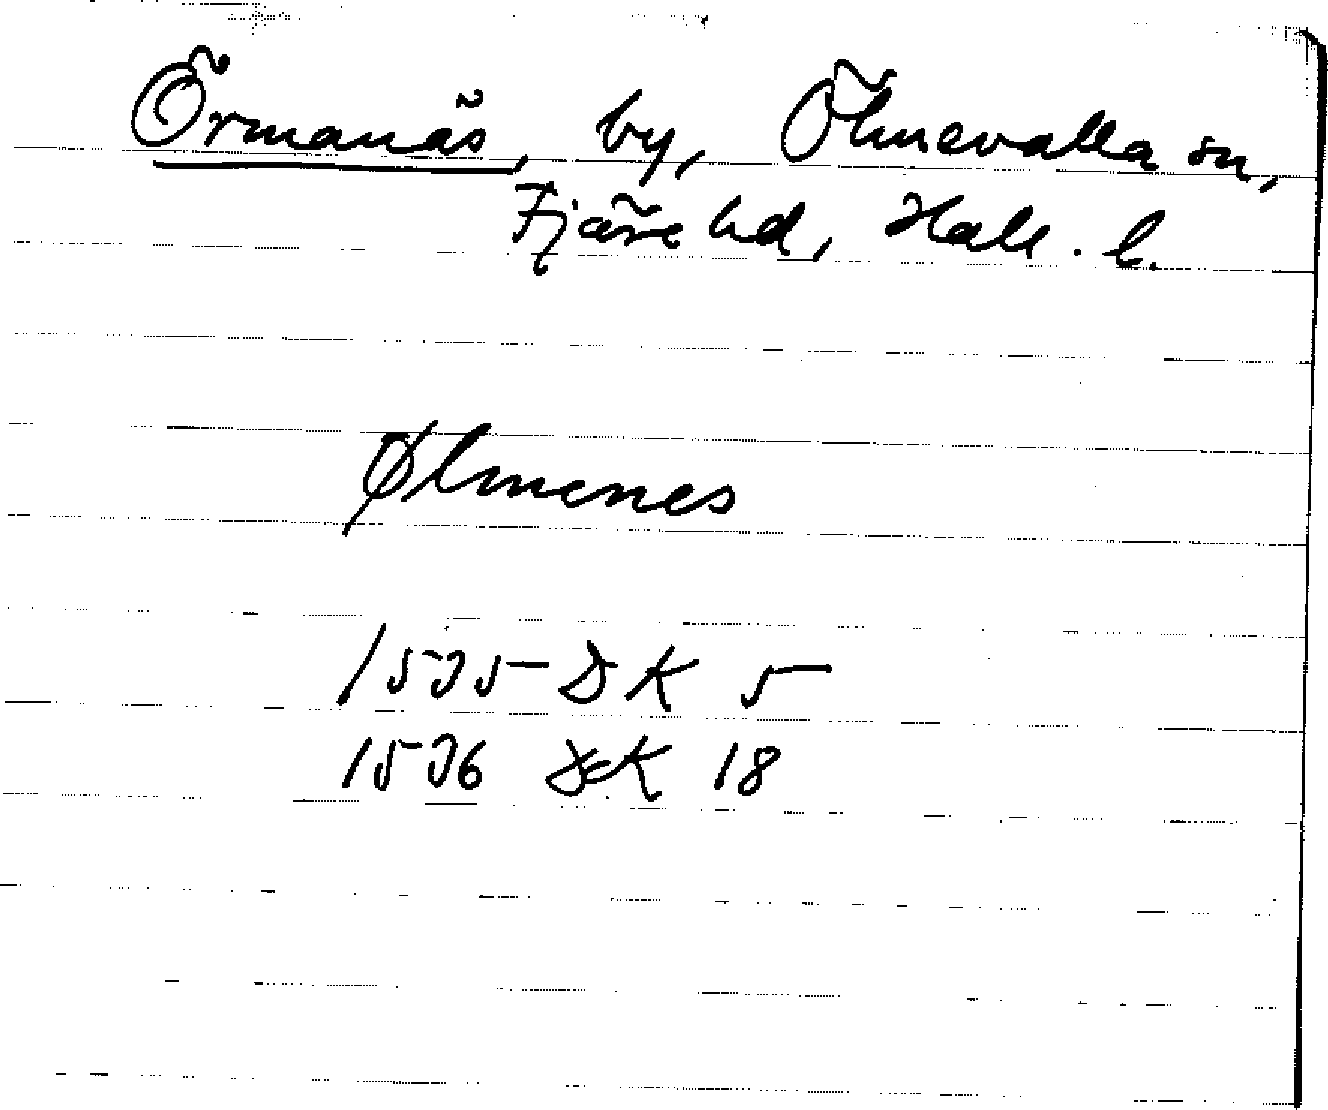 Örmanäs, by, Ölmevalla sn,
Fjäre hd, Hall. l.
Ølmenes
1595 DK 5
1596 DK 18